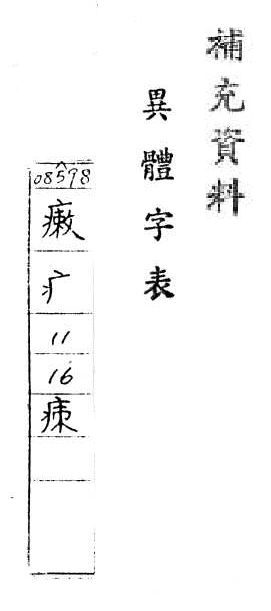 補充資料
異體字表
08598
瘷
疒
11
16
㾊